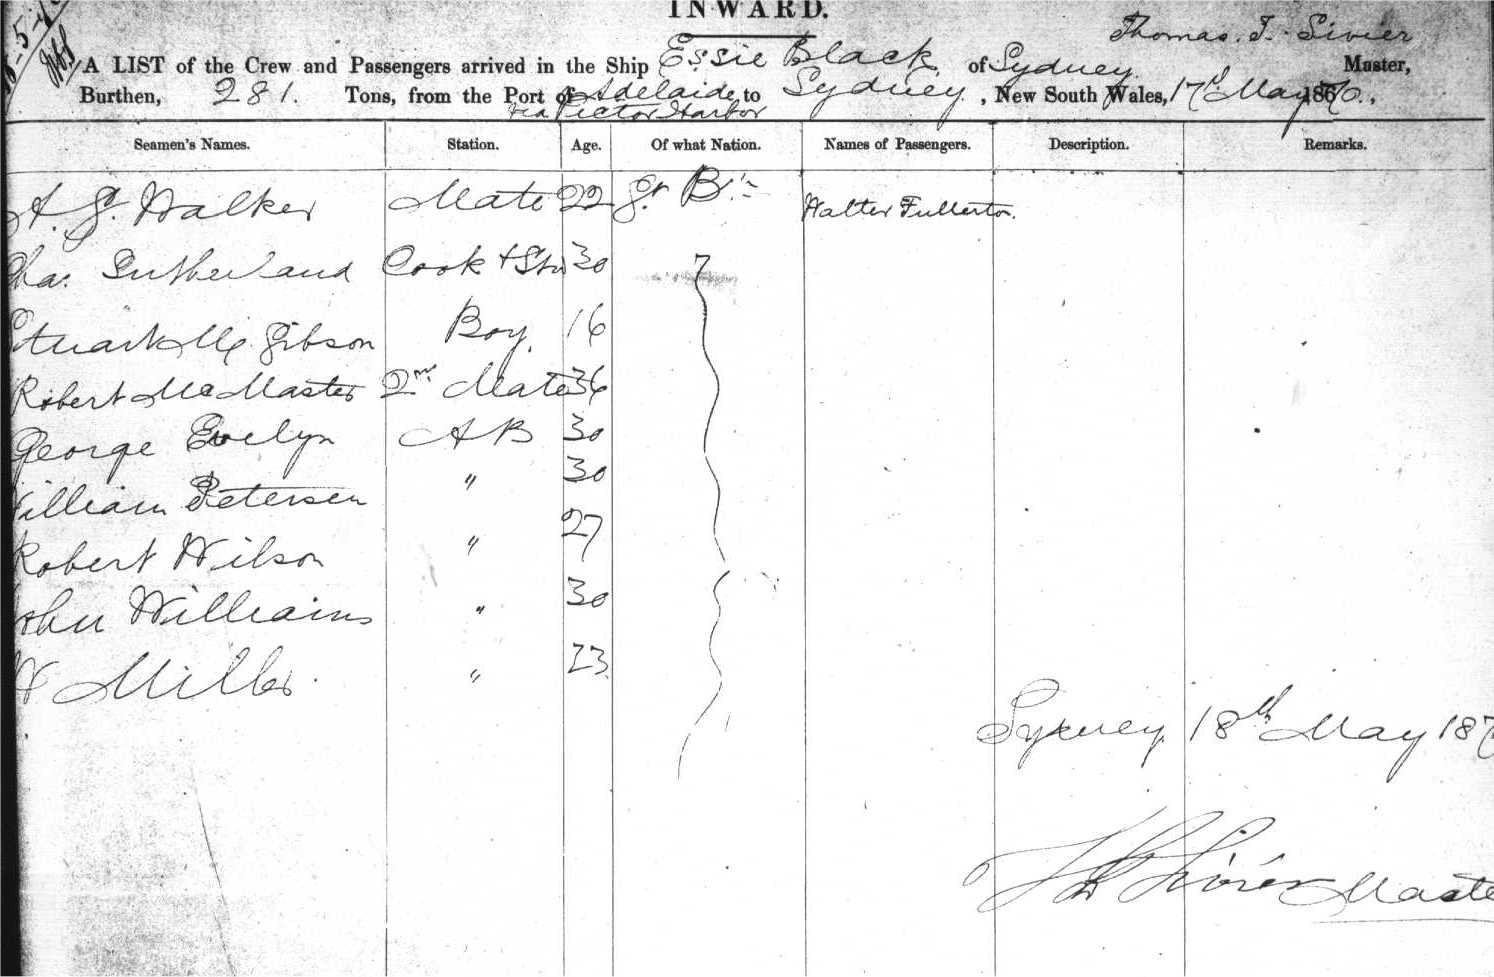 INWARD.
Thomas. J. Sivier
A LIST of the Crew and Passengers arrived in the Ship Essie Black of Sydney Master,
Burthen, 281. Tons, from the Port of Adelaide to Sydney, New South Wales, 17th May 1870.,
via Victor Harbor
Seamen's Names. Station. Age. Of what Nation. Names of Passengers. Description. Remarks.
A. G. Walker Mate 22 Gt Bn Walter Fullerton.
Chas. Sutherland Cook + Stw 30
Stuart Mc Gibson Boy. 16
Robert McMaster 2nd Mate 36
George Evelyn AB 30
William Petersen " 30
Robert Wilson " 27
John Williams " 30
Miller " 23
Sydney 18th May 187
Sivier Master